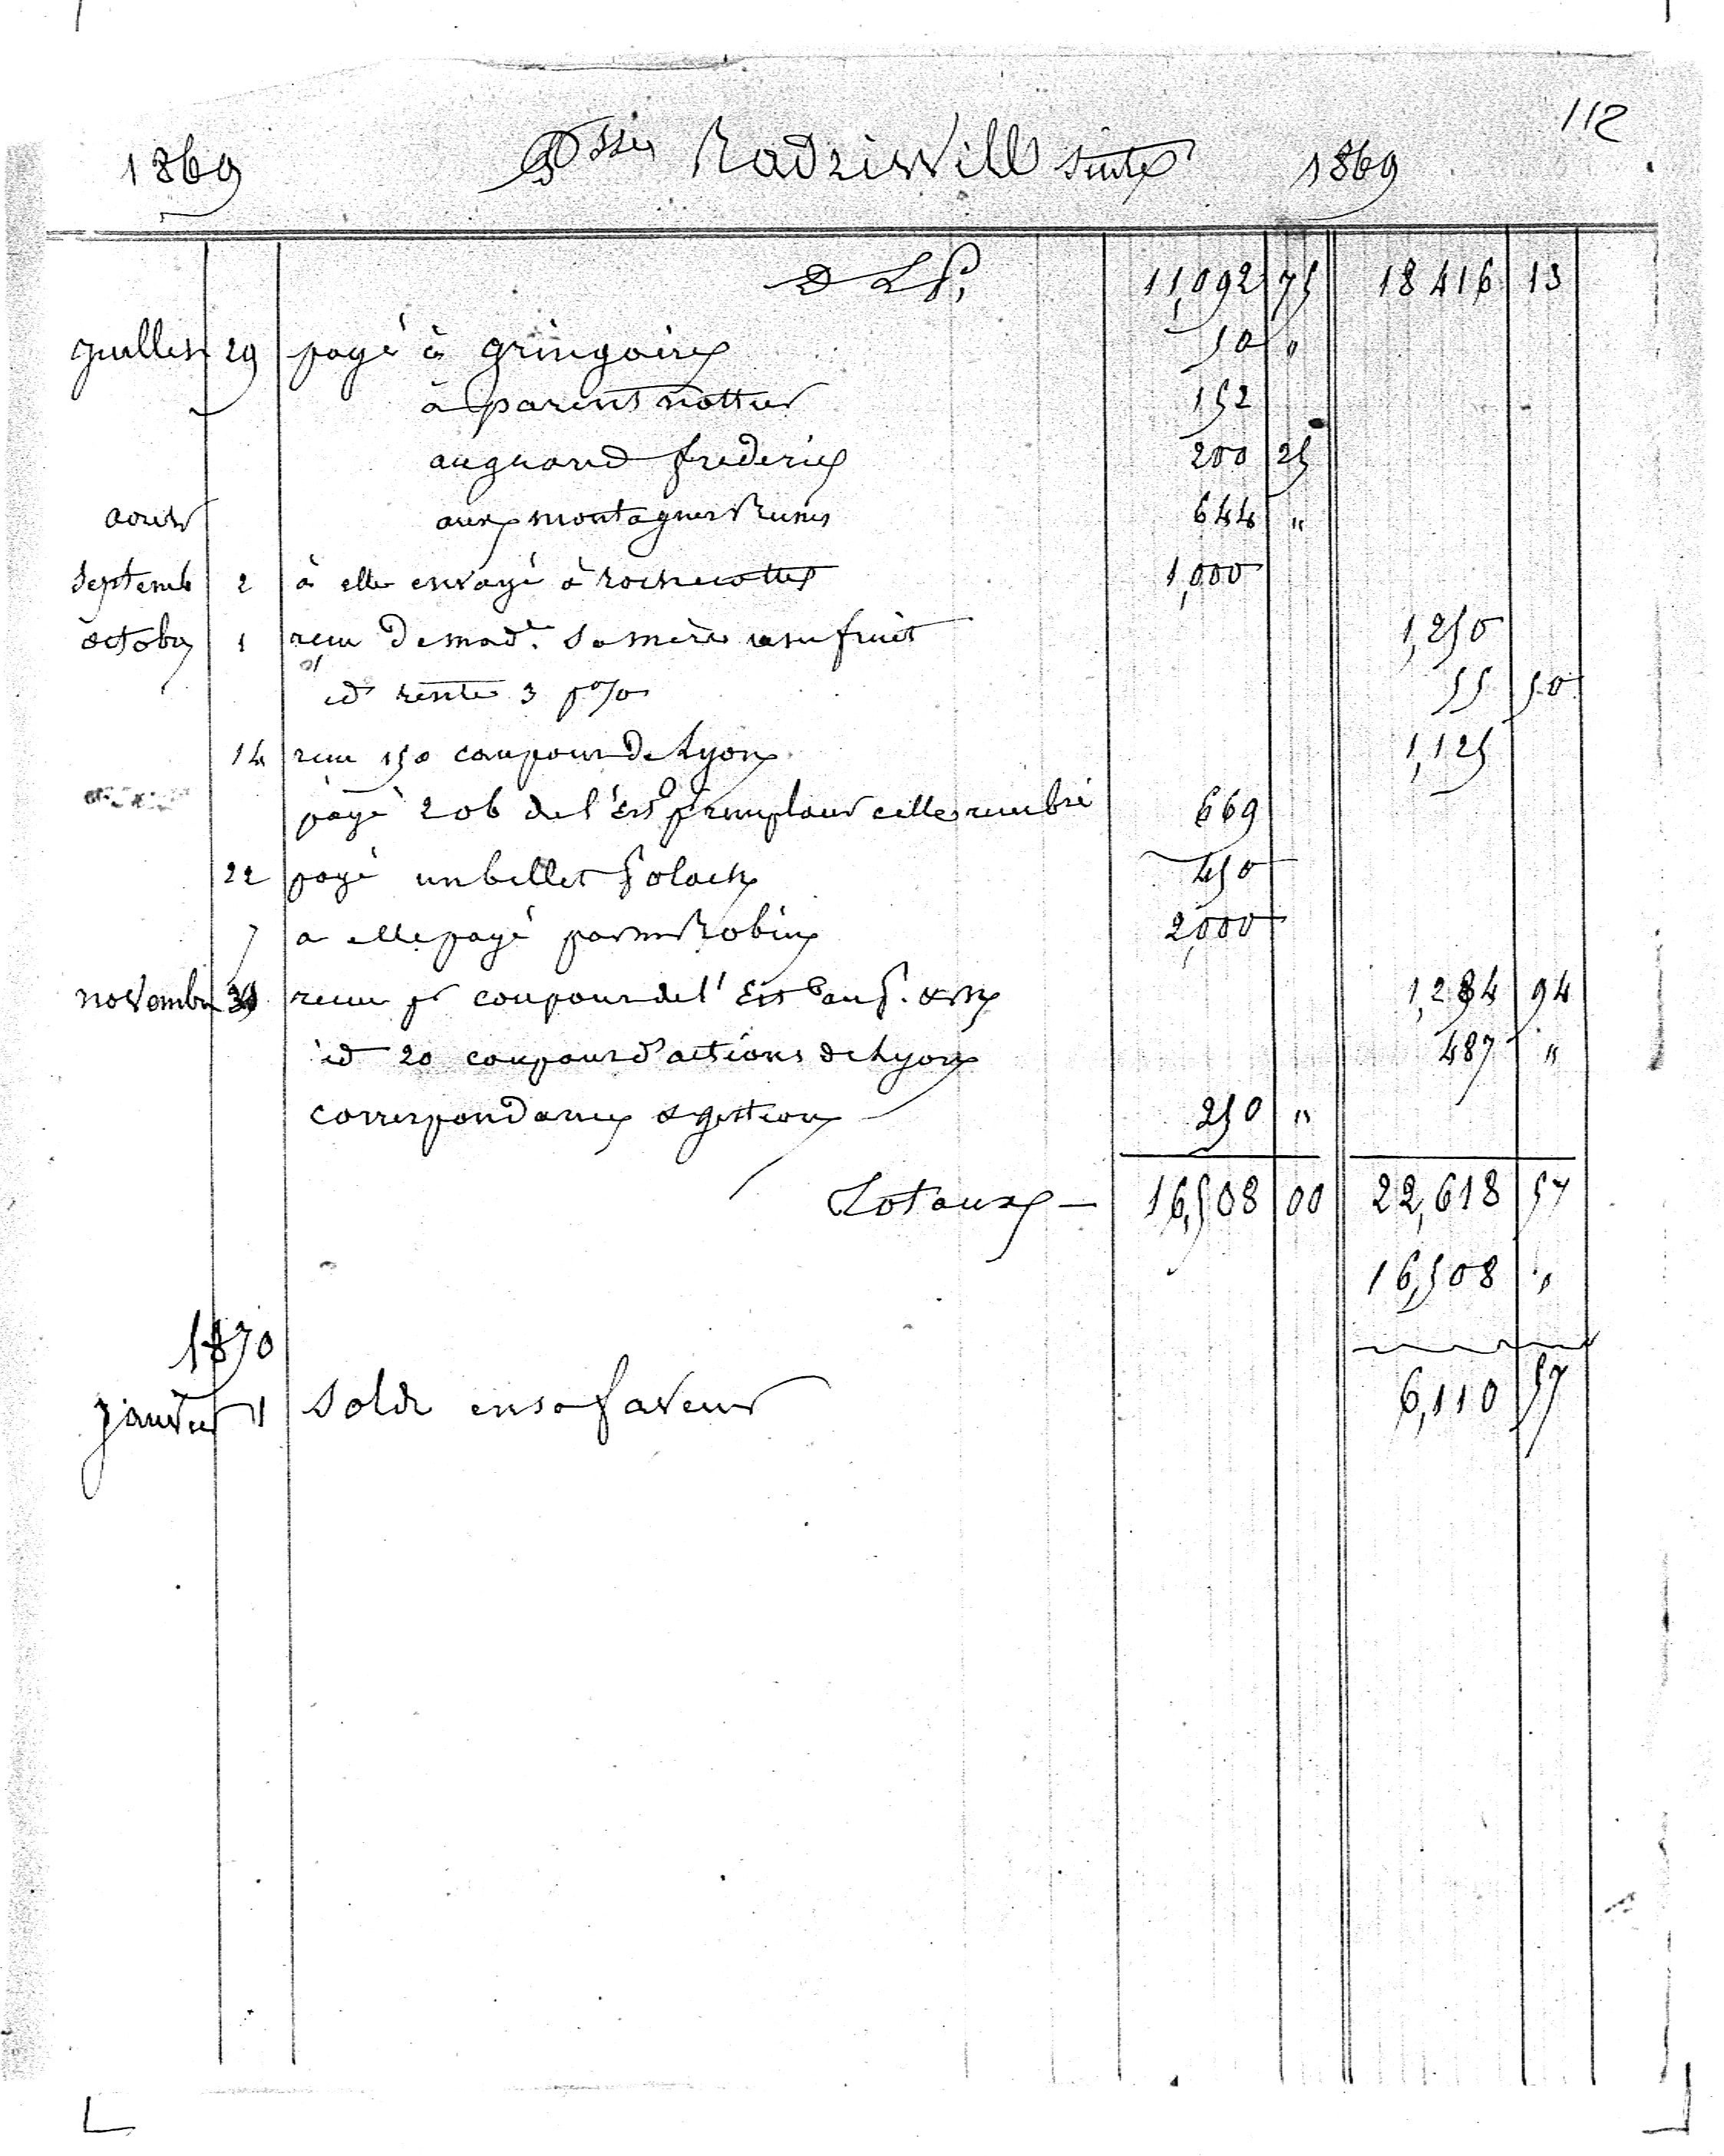 112
1869 Psse Radziwill suite 1869
D L P. 11,092 75 18 416 13
juillet 29 payé à gringoire 50 "
à parent nottier 152
au grand frederic 200 25
aout aux montagnes Russes 644 "
Septemb 2 à elle envoyé à rochecotte 1,000
octobre 1 reçu de made. sa mère usufruit 1,250
id rente 3 p% 55 50
14 reçu 150 coupons de Lyon 1,125
payé 2 ob de l'Est pr remplacer celles rembé 669
22 payé un billet Polack 450
7 a elle payé par mr Robin 2,000
novembre 30 reçu pr coupons de l'Est 1,284 94
id 20 coupons d'actions de Lyon 487 "
correspondance & gestion 250 "
Totaux — 16,508 00 22,618 57
16,508 "
1870
janvier 1 Solde en sa faveur 6,110 57